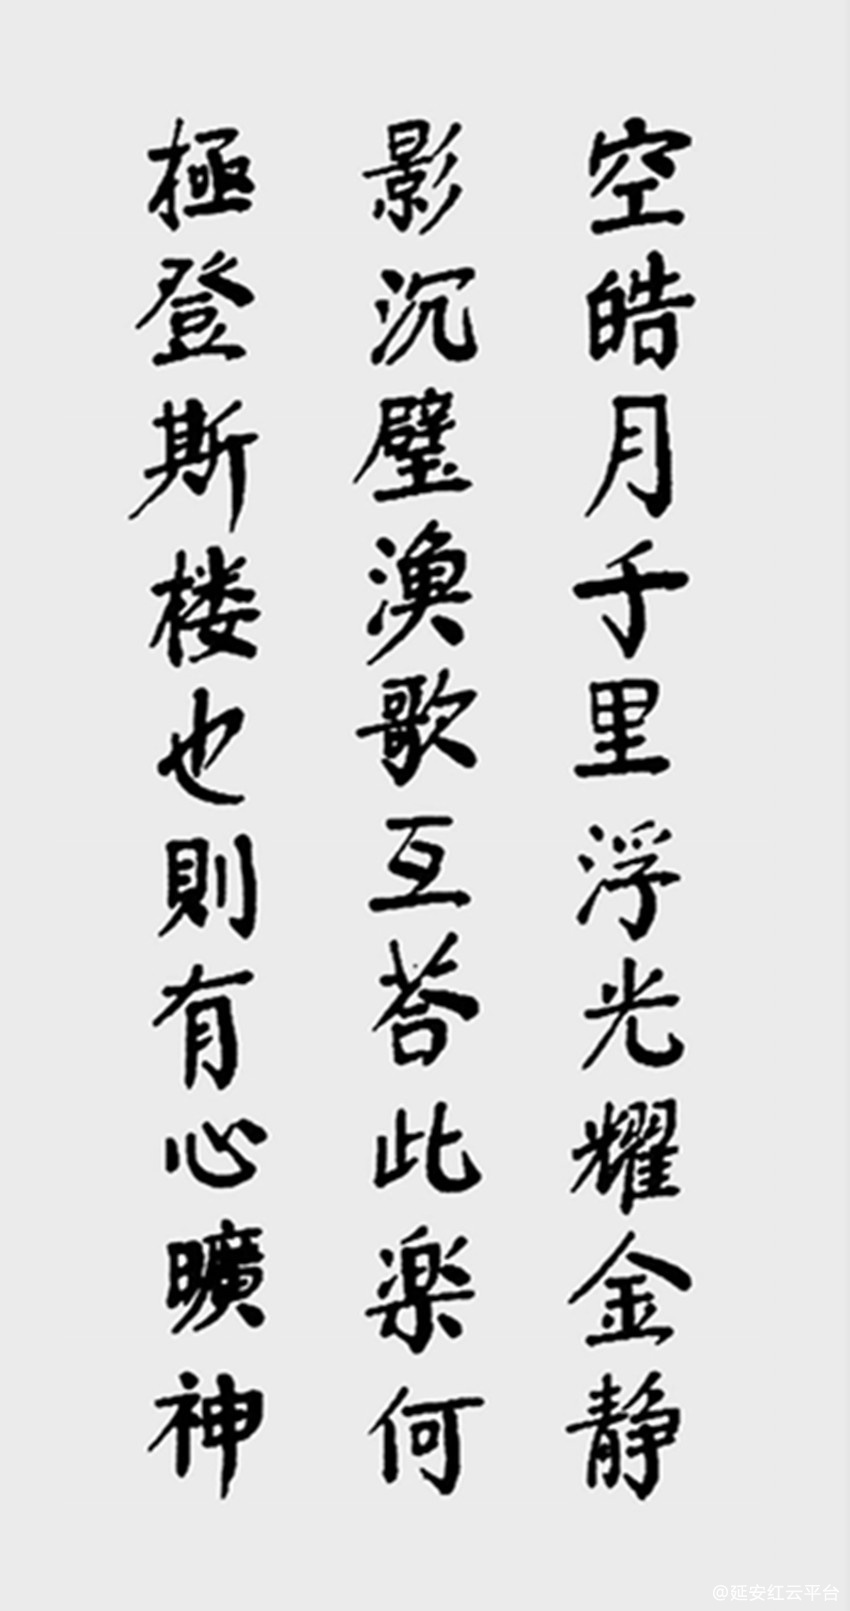 空皓月千里浮光耀金静
影沉璧漁歌互荅此楽何
極登斯楼也則有心曠神
@延安红云平台